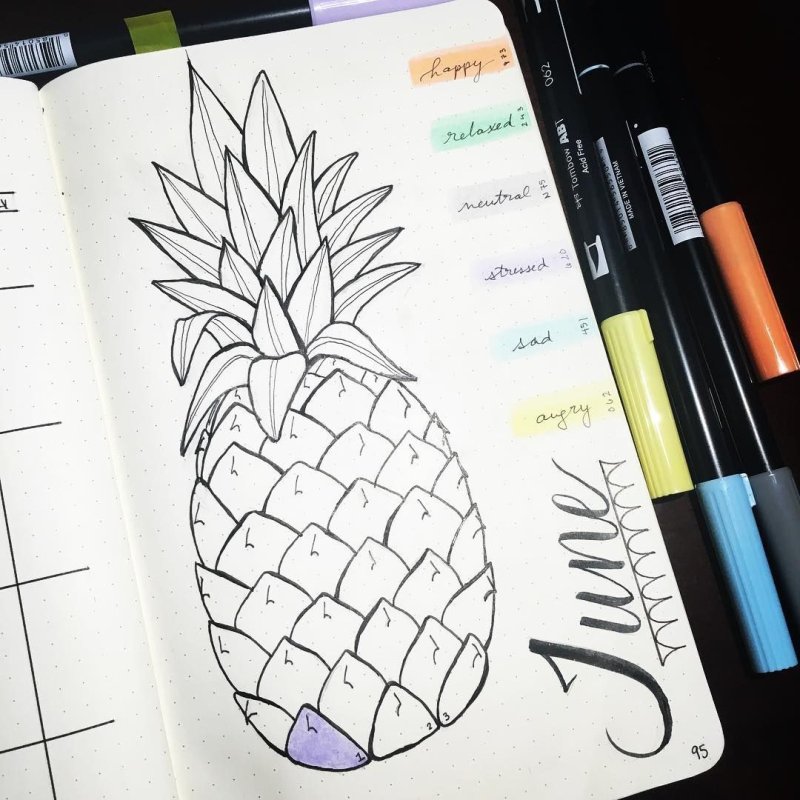 happy 973
relaxed 243
neutral N75
stressed 620
sad 451
angry 062
June
95
1
2
3
062
Tombow ABT
Acid Free
MADE IN VIETNAM